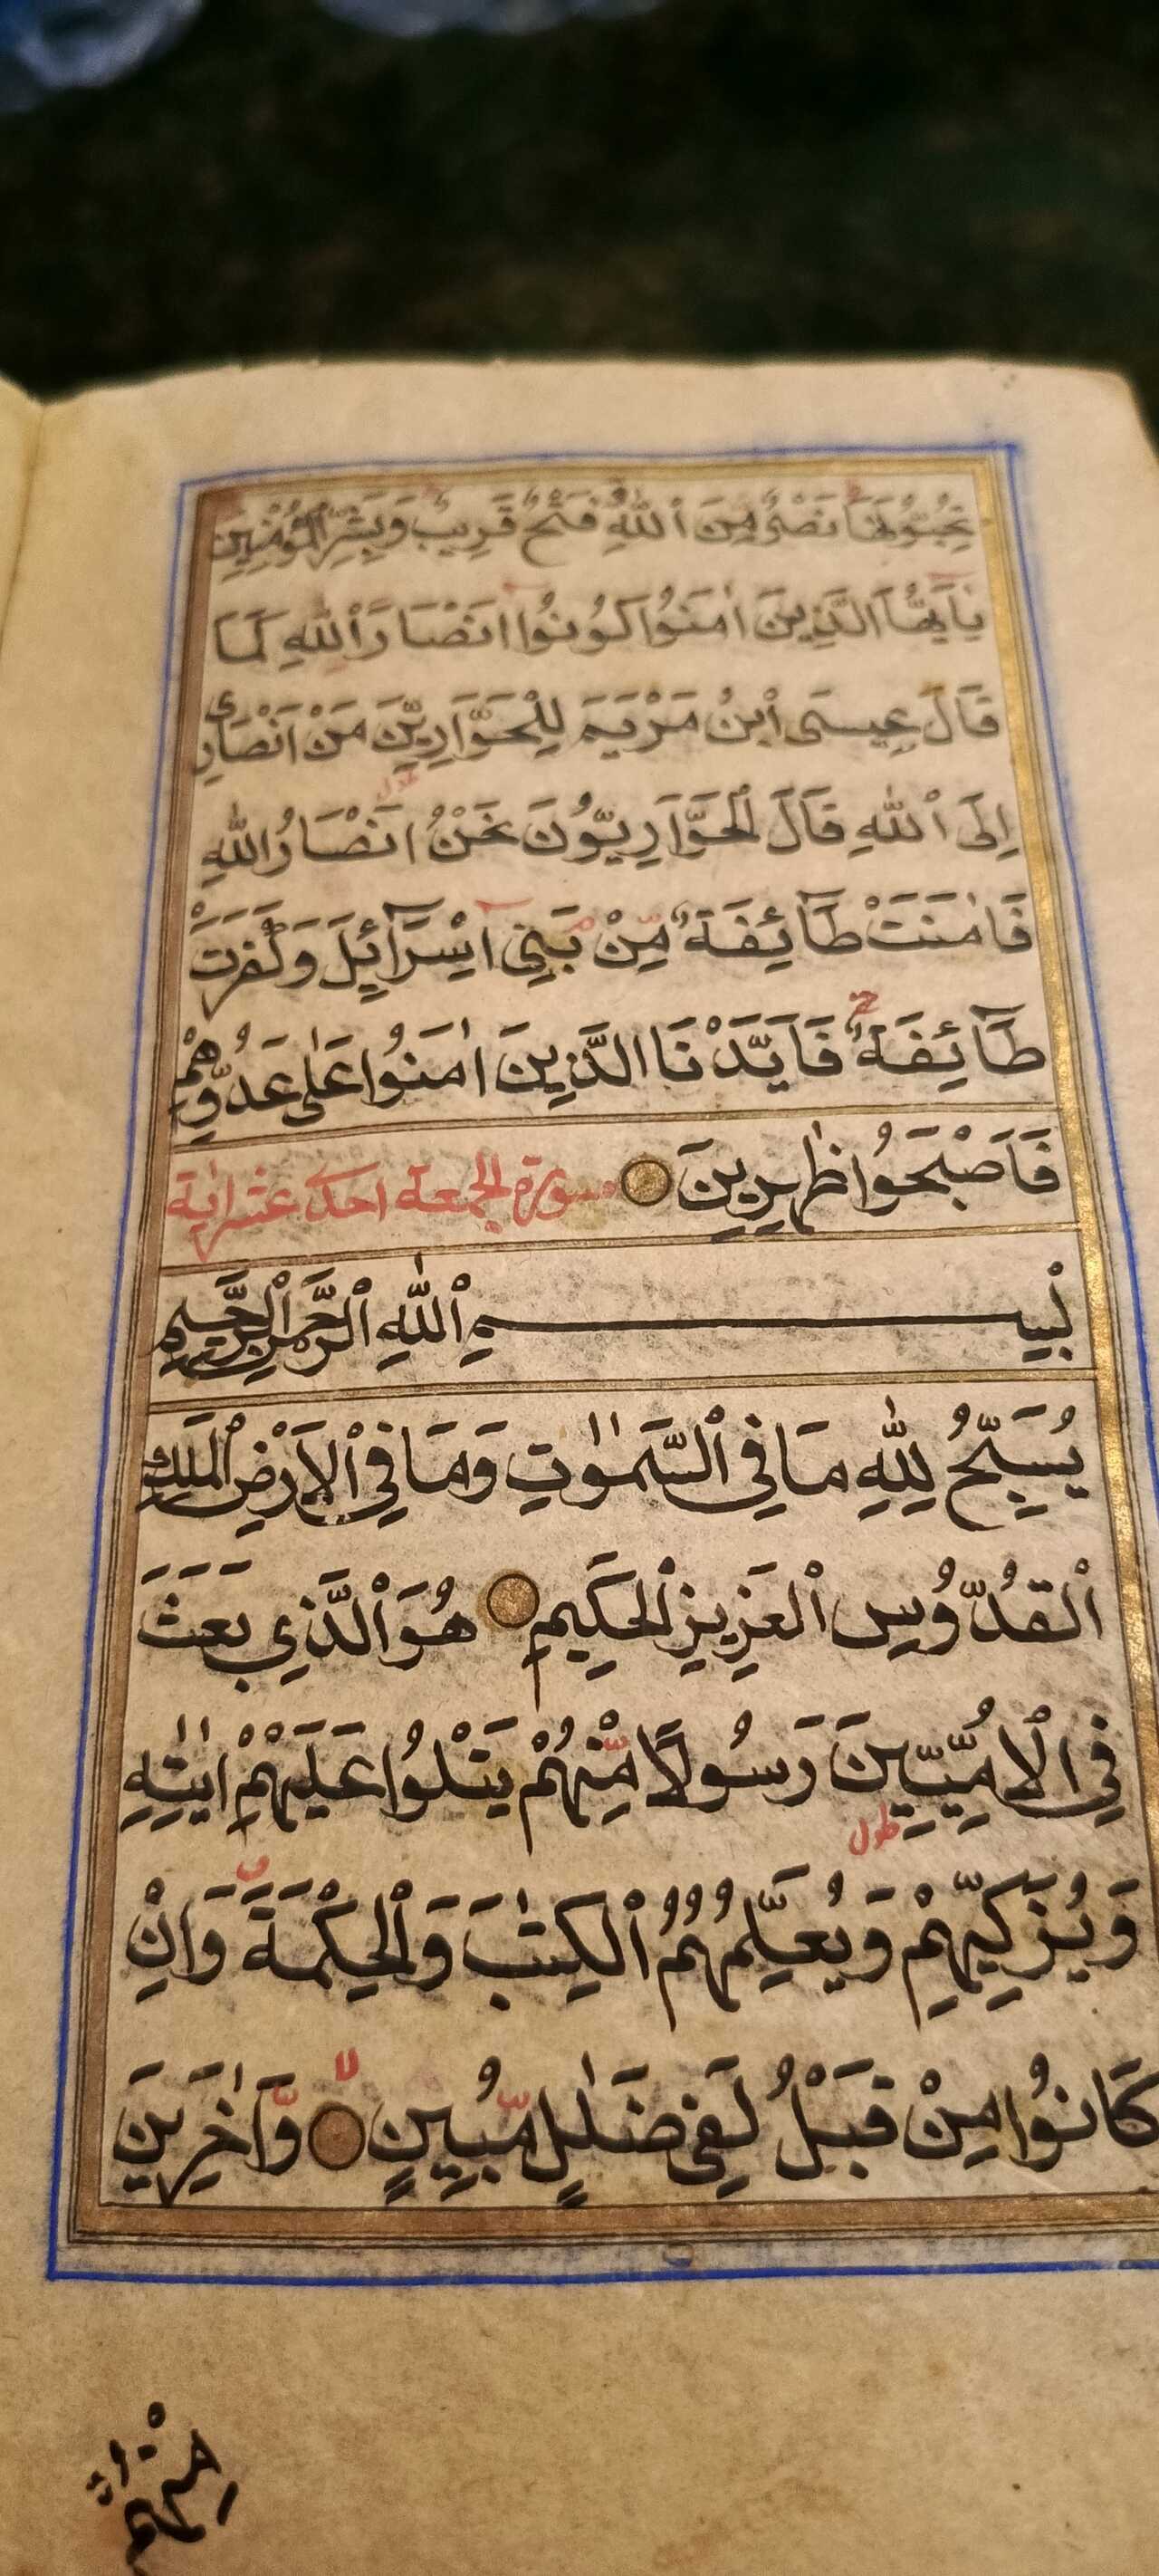 تُحِبُّونَهَا نَصْرٌ مِنَ اللّٰهِ وَفَتْحٌ قَرِيبٌ وَبَشِّرِ الْمُؤْمِنِينَ
يَٰٓاَيُّهَا الَّذِينَ اٰمَنُوا كُونُٓوا اَنْصَارَ اللّٰهِ كَمَا
قَالَ عِيسَى ابْنُ مَرْيَمَ لِلْحَوَّارِيِّنَ مَنْ اَنْصَارِى
اِلَى اللّٰهِ قَالَ الْحَوَّارِيُّونَ نَحْنُ اَنْصَارُ اللّٰهِ
فَاٰمَنَتْ طَٓائِفَةٌ مِّنْ بَنِى اِسْرَٓائِلَ وَكَفَرَتْ
طَٓائِفَةٌ فَاَيَّدْنَا الَّذِينَ اٰمَنُوا عَلٰى عَدُوِّهِمْ
فَاَصْبَحُوا ظٰهِرِينَ سورة الجمعة احدى عشر اية
بِسْمِ اللّٰهِ الرَّحْمٰنِ الرَّحِيمِ
يُسَبِّحُ لِلّٰهِ مَا فِى السَّمٰوٰتِ وَمَا فِى الْاَرْضِ الْمَلِكِ
الْقُدُّوسِ الْعَزِيزِ الْحَكِيمِ هُوَ الَّذِي بَعَثَ
فِى الْاُمِّيِّينَ رَسُولًا مِّنْهُمْ يَتْلُوا عَلَيْهِمْ اٰيٰتِهِ
طول
وَيُزَكِّيهِمْ وَيُعَلِّمُهُمُ الْكِتٰبَ وَالْحِكْمَةَ وَاِنْ
كَانُوا مِنْ قَبْلُ لَفِى ضَلٰلٍ مُّبِينٍ لا وَّاٰخَرِينَ
مِنْهُمْ